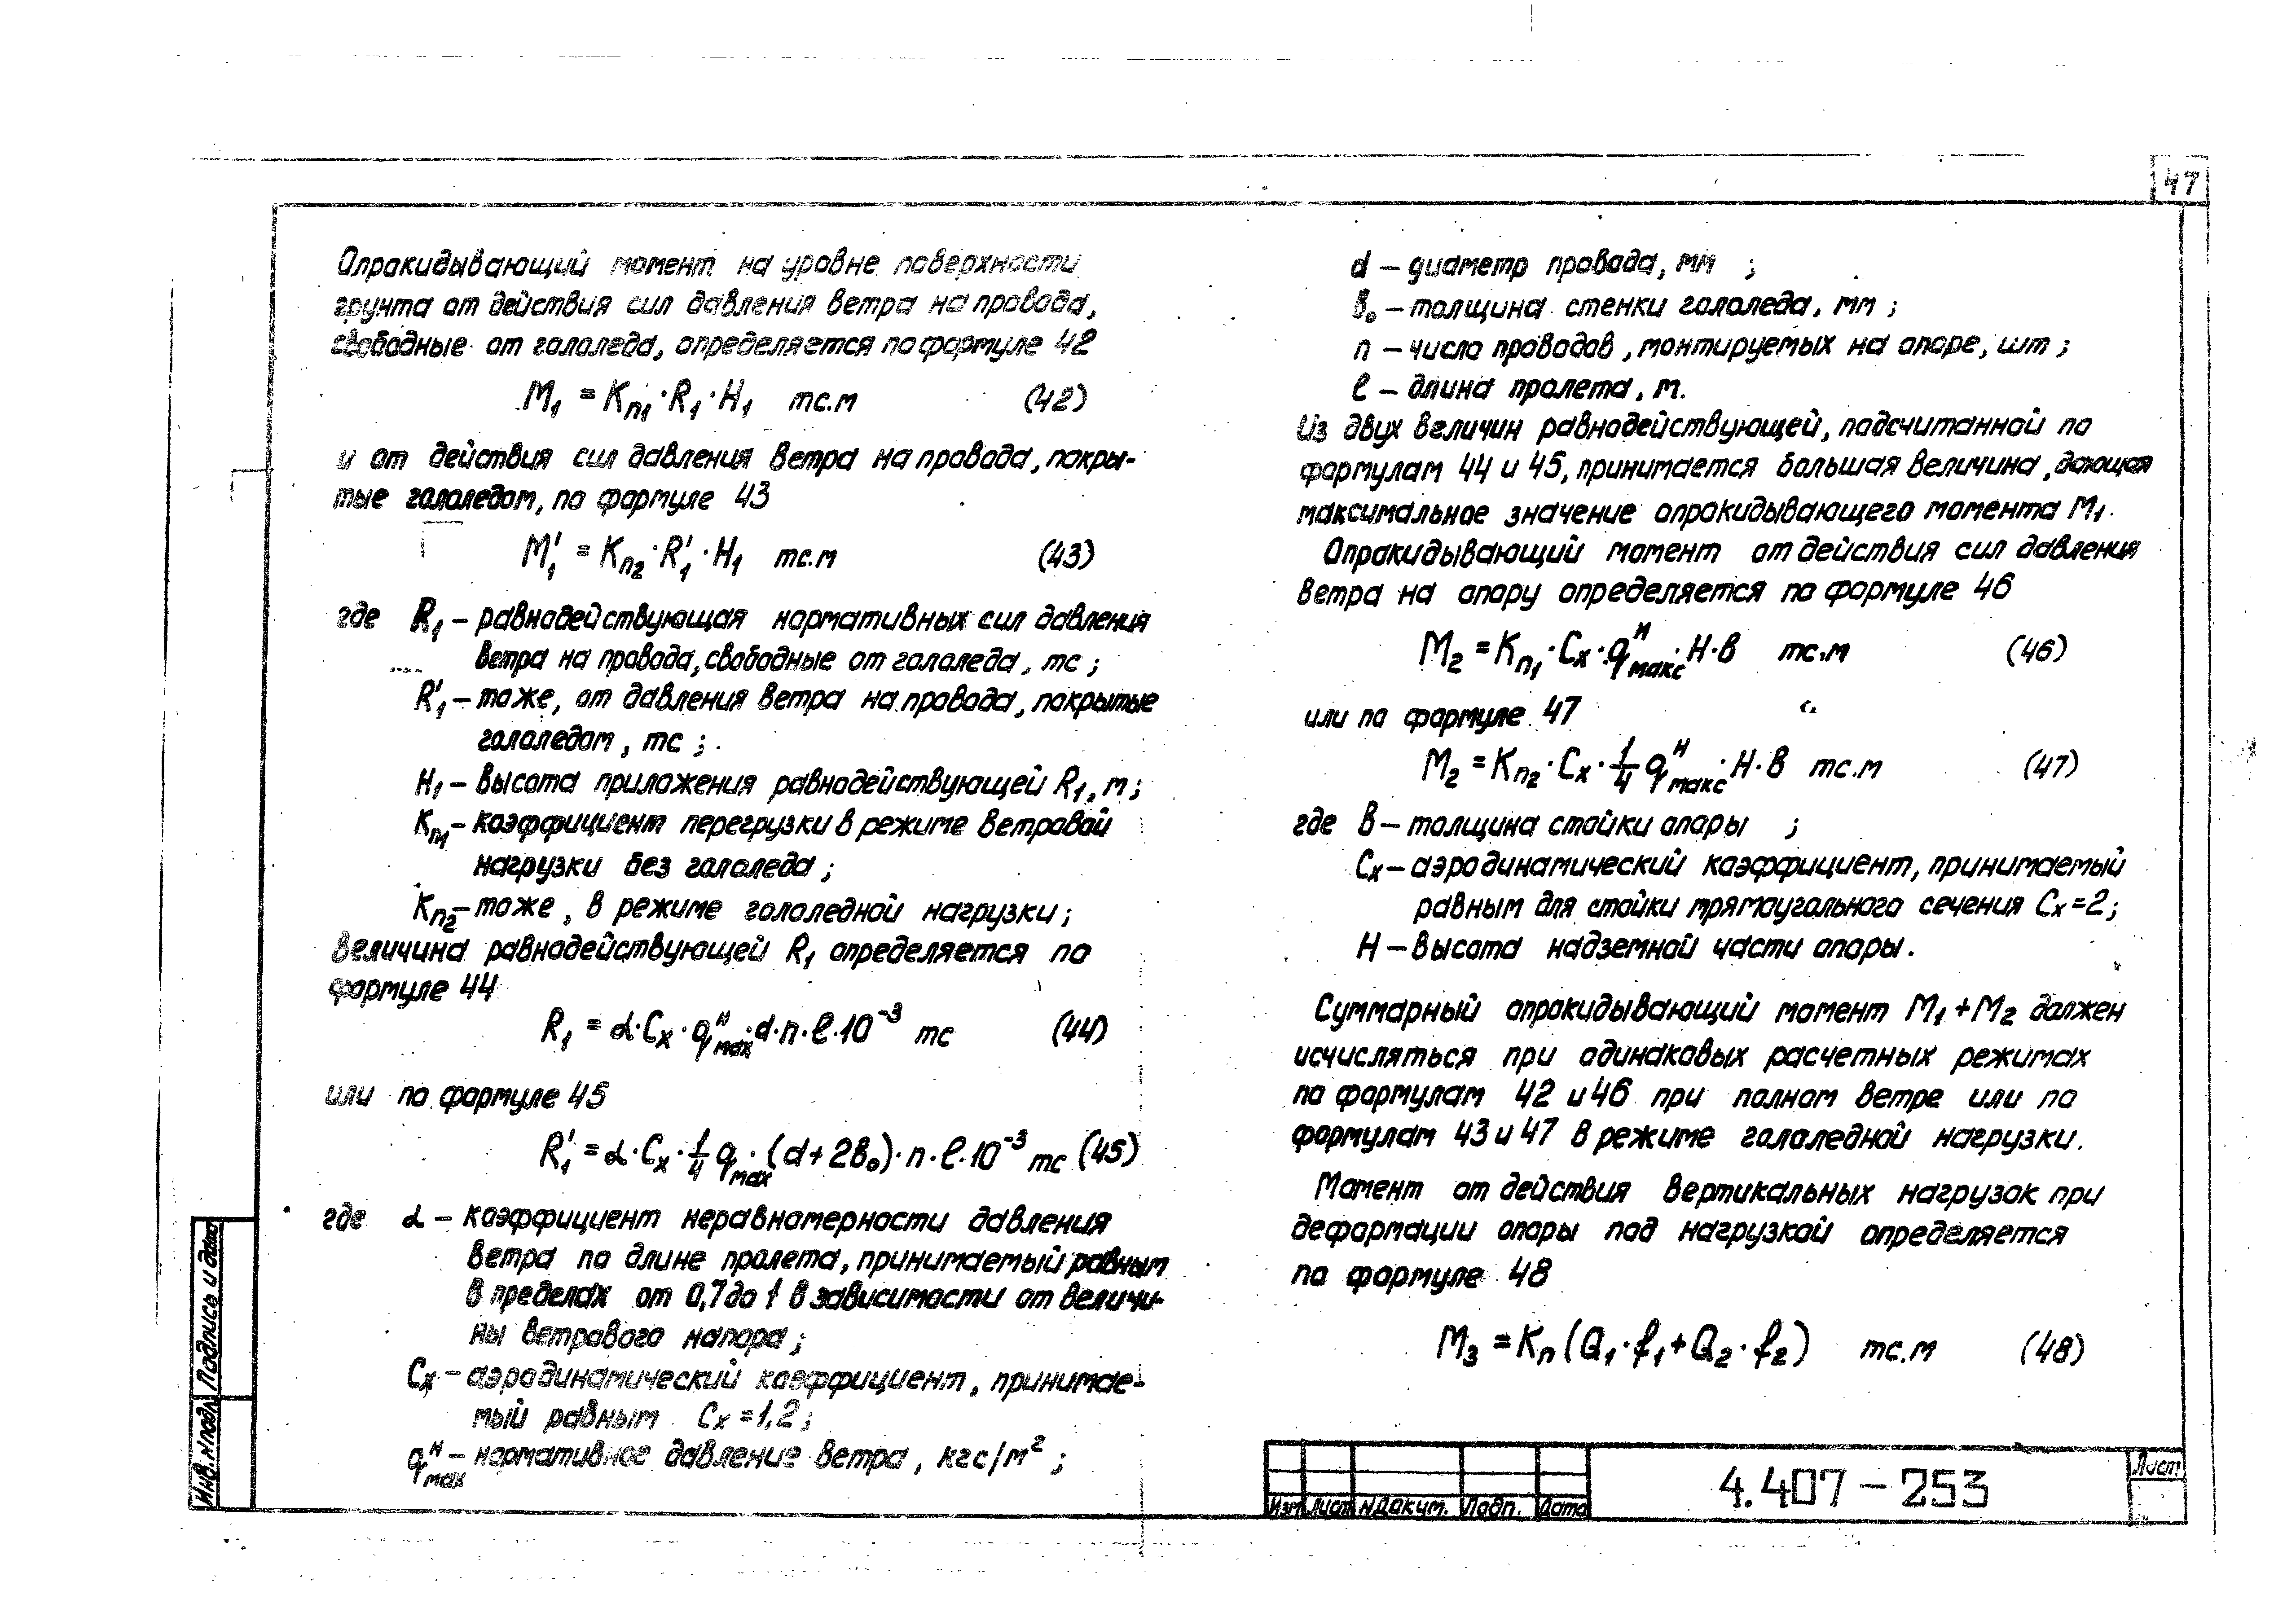 47
Опрокидывающий момент на уровне поверхности
грунта от действия сил давления ветра на провода,
свободные от гололеда, определяется по формуле 42
M₁ = Kп₁·R₁·H₁ тс.м (42)
и от действия сил давления ветра на провода, покры-
тые гололедом, по формуле 43
M₁' = Kп₂·R₁'·H₁ тс.м (43)
где R₁ – равнодействующая нормативных сил давления
ветра на провода, свободные от гололеда, тс;
R₁' – тоже, от давления ветра на провода, покрытые
гололедом, тс;
H₁ – высота приложения равнодействующей R₁, м;
Kп₁ – коэффициент перегрузки в режиме ветровой
нагрузки без гололеда;
Kп₂ – тоже, в режиме гололедной нагрузки;
Величина равнодействующей R₁ определяется по
формуле 44
R₁ = α·Cх·qᴴmax·d·п·ℓ·10⁻³ тс (44)
или по формуле 45
R₁' = α·Cх·1/4 qmax·(d+2в₀)·п·ℓ·10⁻³ тс (45)
где α – коэффициент неравномерности давления
ветра по длине пролета, принимаемый равным
в пределах от 0,7 до 1 в зависимости от величи-
ны ветрового напора;
Cх – аэродинамический коэффициент, принимае-
мый равным Cх=1,2;
qᴴmax – нормативное давление ветра, кгс/м²;
d – диаметр провода, мм ;
в₀ – толщина стенки гололеда, мм;
п – число проводов, монтируемых на опоре, шт;
ℓ – длина пролета, м.
Из двух величин равнодействующей, подсчитанной по
формулам 44 и 45, принимается большая величина, дающая
максимальное значение опрокидывающего момента M₁.
Опрокидывающий момент от действия сил давления
ветра на опору определяется по формуле 46
M₂ = Kп₁·Cх·qᴴмакс·H·в тс.м (46)
или по формуле 47
M₂ = Kп₂·Cх·1/4 qᴴмакс·H·в тс.м (47)
где в – толщина стойки опоры ;
Cх – аэродинамический коэффициент, принимаемый
равным для стойки прямоугольного сечения Cх=2;
H – высота надземной части опоры.
Суммарный опрокидывающий момент M₁+M₂ должен
исчисляться при одинаковых расчетных режимах
по формулам 42 и 46 при полном ветре или по
формулам 43 и 47 в режиме гололедной нагрузки.
Момент от действия вертикальных нагрузок при
деформации опоры под нагрузкой определяется
по формуле 48
M₃ = Kп (Q₁·f₁+Q₂·f₂) тс.м (48)
Инв.N подл Подпись и дата
Изм Лист N Докум. Подп. Дата
4.407 – 253
Лист